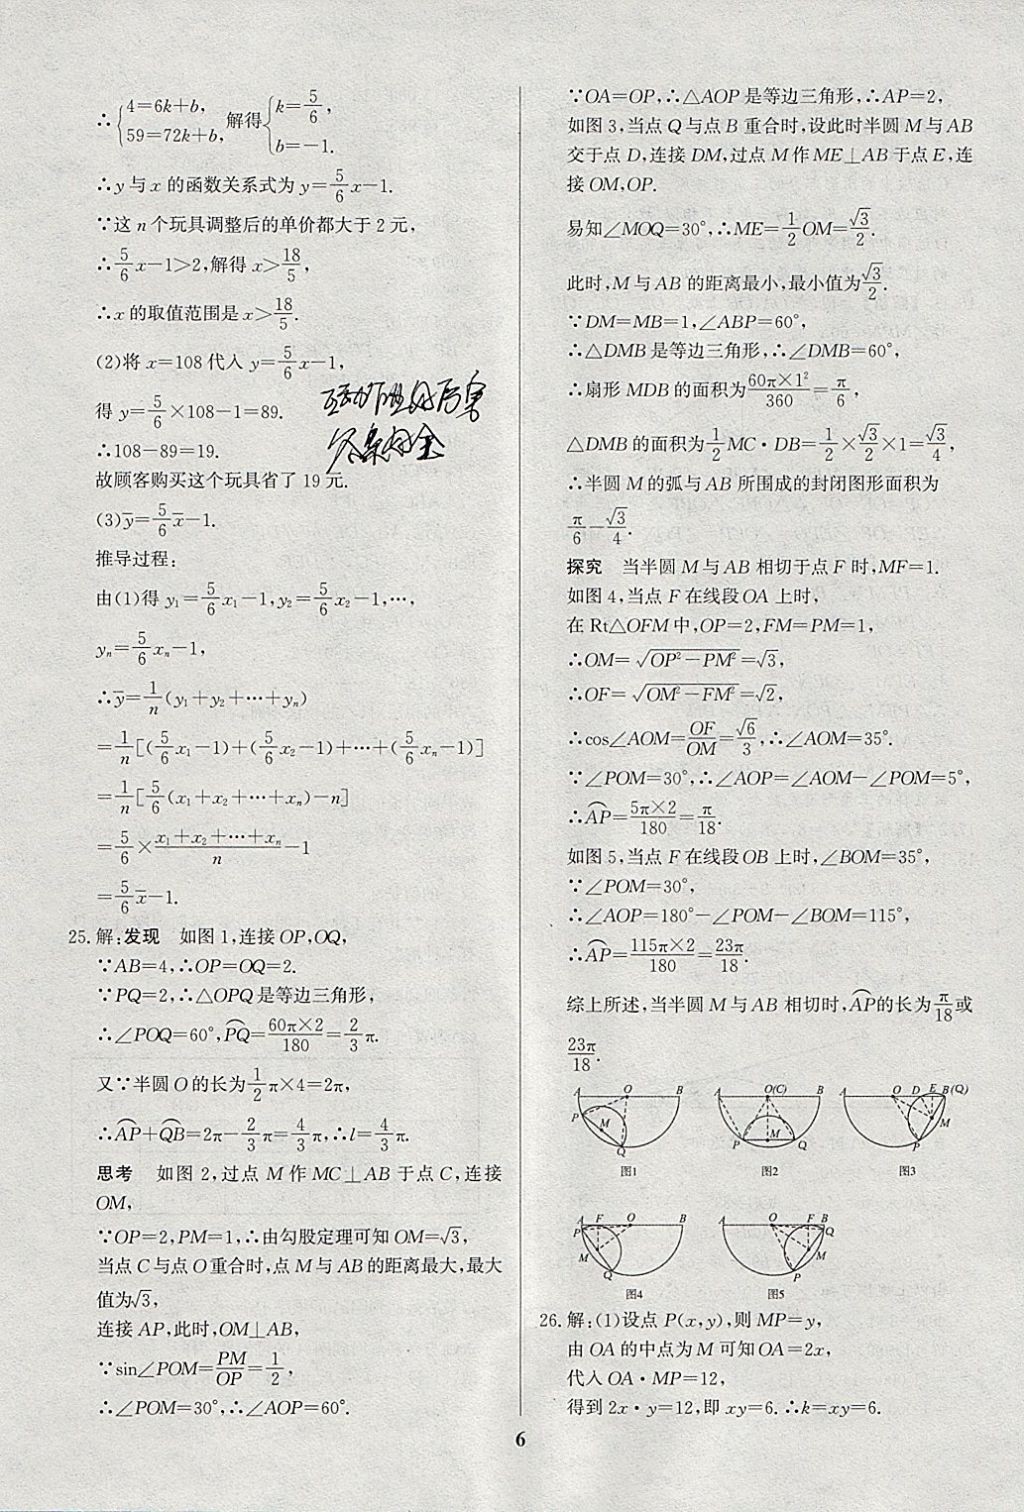 ∴{4=6k+b, 59=72k+b, 解得{k=5/6, b=-1.
∴y与x的函数关系式为y=5/6x-1.
∵这n个玩具调整后的单价都大于2元,
∴5/6x-1>2,解得x>18/5,
∴x的取值范围是x>18/5.
(2)将x=108代入y=5/6x-1,
得y=5/6×108-1=89.
∴108-89=19.
故顾客购买这个玩具省了19元.
(3)y̅=5/6x̅-1.
推导过程:
由(1)得y₁=5/6x₁-1,y₂=5/6x₂-1,…,
yₙ=5/6xₙ-1,
∴y̅=1/n(y₁+y₂+…+yₙ)
=1/n[(5/6x₁-1)+(5/6x₂-1)+…+(5/6xₙ-1)]
=1/n[5/6(x₁+x₂+…+xₙ)-n]
=5/6×(x₁+x₂+…+xₙ)/n-1
=5/6x̅-1.
25.解:发现 如图1,连接OP,OQ,
∵AB=4,∴OP=OQ=2.
∵PQ=2,∴△OPQ是等边三角形,
∴∠POQ=60°,⌒PQ=60π×2/180=2/3π.
又∵半圆O的长为1/2π×4=2π,
∴⌒AP+⌒QB=2π-2/3π=4/3π,∴l=4/3π.
思考 如图2,过点M作MC⊥AB于点C,连接
OM,
∵OP=2,PM=1,∴由勾股定理可知OM=√3,
当点C与点O重合时,点M与AB的距离最大,最大
值为√3,
连接AP,此时,OM⊥AB,
∵sin∠POM=PM/OP=1/2,
∴∠POM=30°,∴∠AOP=60°.
∵OA=OP,∴△AOP是等边三角形,∴AP=2,
如图3,当点Q与点B重合时,设此时半圆M与AB
交于点D,连接DM,过点M作ME⊥AB于点E,连
接OM,OP.
易知∠MOQ=30°,∴ME=1/2OM=√3/2.
此时,M与AB的距离最小,最小值为√3/2.
∵DM=MB=1,∠ABP=60°,
∴△DMB是等边三角形,∴∠DMB=60°,
∴扇形MDB的面积为60π×1²/360=π/6,
△DMB的面积为1/2MC·DB=1/2×√3/2×1=√3/4,
∴半圆M的弧与AB所围成的封闭图形面积为
π/6-√3/4.
探究 当半圆M与AB相切于点F时,MF=1.
如图4,当点F在线段OA上时,
在Rt△OFM中,OP=2,FM=PM=1,
∴OM=√(OP²-PM²)=√3,
∴OF=√(OM²-FM²)=√2,
∴cos∠AOM=OF/OM=√6/3,∴∠AOM=35°.
∵∠POM=30°,∴∠AOP=∠AOM-∠POM=5°,
∴⌒AP=5π×2/180=π/18.
如图5,当点F在线段OB上时,∠BOM=35°,
∵∠POM=30°,
∴∠AOP=180°-∠POM-∠BOM=115°,
∴⌒AP=115π×2/180=23π/18.
综上所述,当半圆M与AB相切时,⌒AP的长为π/18或
23π/18.
A O B P M Q
图1
A O(C) B P M Q
图2
A O D E B(Q) M P
图3
A F O B P M Q
图4
A O F B Q M P
图5
26.解:(1)设点P(x,y),则MP=y,
由OA的中点为M可知OA=2x,
代入OA·MP=12,
得到2x·y=12,即xy=6.∴k=xy=6.
6